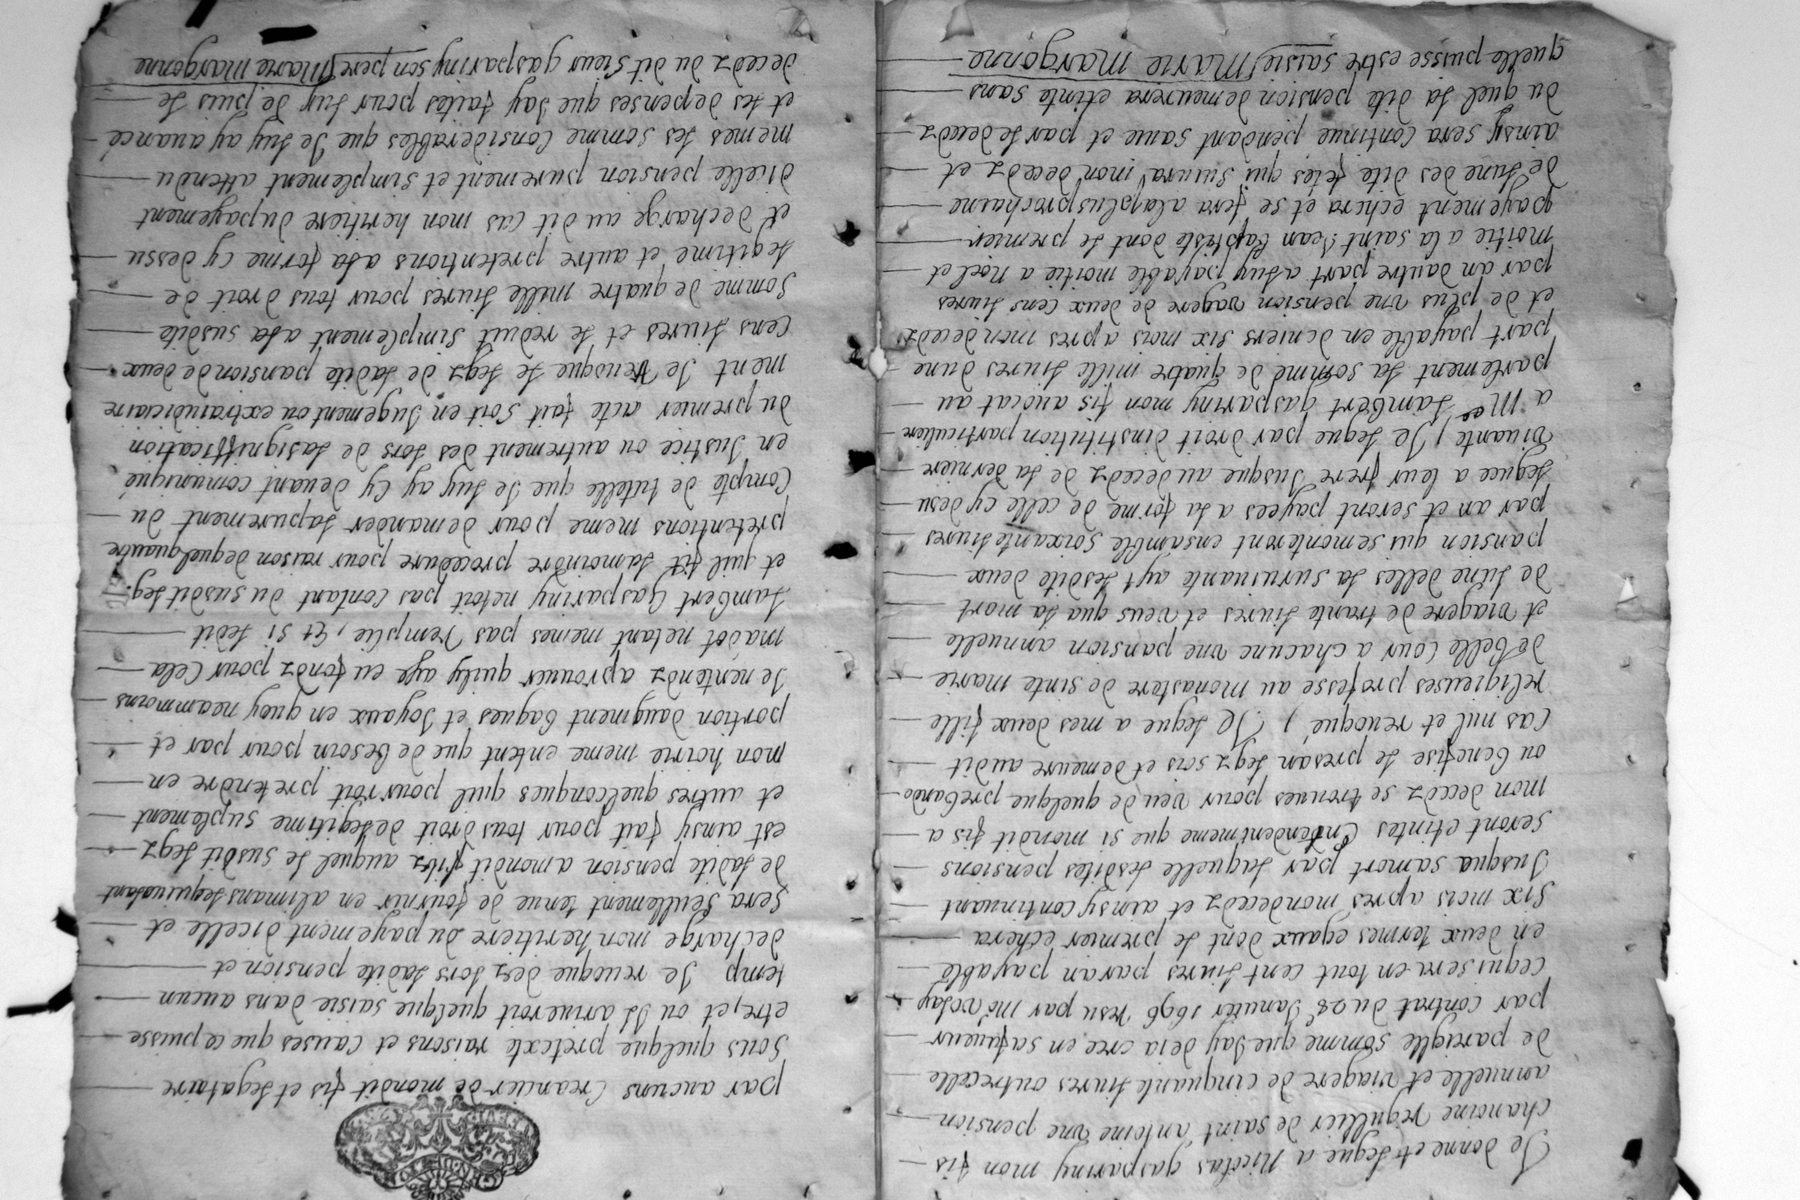 Je donne et legue a Nicolas gaspariny mon fis
chanoine regullier de saint antoine une pension
annuelle et viagere de cinquante livres outrecelle
de pareiglle somme que Jay deia cree en sa faveur
par contrat du 28e Janvier 1696 resu par me volay
cequi sera en tout cent livres par an payable
en deux termes egaux dont le premier echera
six mois apres mondecedz et ainsy continuant
Jusqua samort par lequelle lesdites pensions
seront etintes Entendentmeme que si mondit fis a
mon decedz se trouves pour veu de quelque prebande
ou benefise le presan legz sois et demeure audit
Cas nul et revoque, Je legue a mes deux fille
religieuses professe au monastere de sinte marie
de belle Cour a chacune une pansion annuelle
et viagere de trante livres et veus qua la mort
de lune delles la survivante ayt lesdite deux
pansion qui semonteront ensamble soixante livres
par an et seront payees a la forme de celle cy desu
leguee a leur frere Jusque au decedz de la derniere
vivante, Je legue par droit dinstitution particuliere
a Me Lambert gaspariny mon fis avocat au
parlement la somme de quatre mille livres dune
part payable en deniers six mois apres mon decedz
et de plus une pension viagere de deux cens livres
par an dautre part a luy payable moitie a noel et
moitie a la saint Jean baptiste dont le premier
payement echera et se fera a laplus prochaine
de lune des dite fetes qui suivra mon decedz et
ainsy sera continue pendant sa vie et par le decedz
du quel la dite pension demeurera etinte sans
quelle puisse estre saisie Marie margonne
par aucuns Creancier de mondit fis et legataire
Sous quelque pretexte raisons et causes que ce puisse
etre, et ou Il ariveroit quelque saisie dans aucun
temp Je revoque dez lors ladite pension et
decharge mon heritiere du payement dicelle et
sera seullement tenue de fournir en alimans lequivalant
de ladite pension a mondit fils auquel le susdit legz
est ainsy fait pour tous droit de legitime suplement
et autres quelconques quil pourroit pretendre en
mon hoirie meme entent que de besoin pour par et
portion daugment bagues et Joyaux en quoy neammoins
Je nentendz aprouver quily aye eu fondz pour Cela
madot netant meines pas remplie, Et si ledit
Lambert Gaspariny netoit pas contant du susdit leg.
et quil fit lamoindre procedure pour raison dequelquautre
pretentions meme pour demander lapurement du
Compte de tutelle que Je luy ay Cy devant comuniqué
en Justice ou autrement des lors de lasignification
du premier acte fait soit en Jugement ou extraiudiciaire
ment Je revoque le legz de ladite pansion de deux
Cens livres et le reduit simplement a la susdite
somme de quatre mille livres pour tous droit de
legitime et autre pretentions a la forme cy dessu
et decharge au dit Cas mon heritiere du payement
dicelle pension purement et simplement attendu
memes les somme Considerables que Je luy ay avancé
et les depenses que Jay faites pour luy de puis le
decedz du dit sieur gaspariny son pere Marie margonne